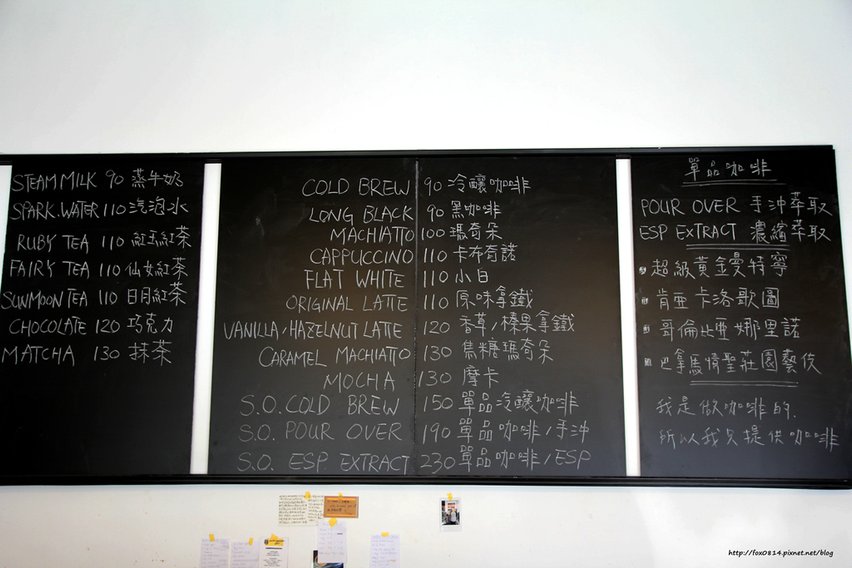 STEAM MILK 90 蒸牛奶
SPARK.WATER 110 汽泡水
RUBY TEA 110 紅玉紅茶
FAIRY TEA 110 仙女紅茶
SUNMOON TEA 110 日月紅茶
CHOCOLATE 120 巧克力
MATCHA 130 抹茶
COLD BREW 90 冷釀咖啡
LONG BLACK 90 黑咖啡
MACHIATTO 100 瑪奇朵
CAPPUCCINO 110 卡布奇諾
FLAT WHITE 110 小白
ORIGINAL LATTE 110 原味拿鐵
VANILLA/HAZELNUT LATTE 120 香草/榛果拿鐵
CARAMEL MACHIATTO 130 焦糖瑪奇朵
MOCHA 130 摩卡
S.O. COLD BREW 150 單品冷釀咖啡
S.O. POUR OVER 190 單品咖啡/手沖
S.O. ESP EXTRACT 230 單品咖啡/ESP
單品咖啡
POUR OVER 手沖萃取
ESP EXTRACT 濃縮萃取
超級黃金曼特寧
肯亞卡洛歌圖
哥倫比亞娜里諾
巴拿馬情聖莊園藝伎
我是做咖啡的.
所以我只提供咖啡
http://fox0814.pixnet.net/blog